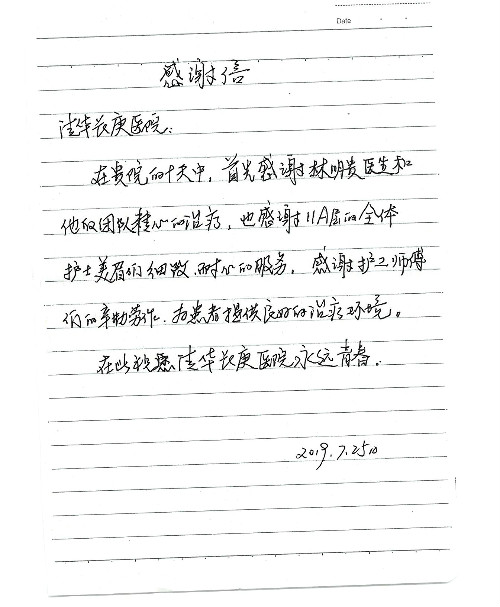 Date
感谢信
清华长庚医院：
在贵院的十天中，首先感谢林明贵医生和
他的团队精心的治疗，也感谢11A层的全体
护士美眉们细致、耐心的服务，感谢护工师傅
们的辛勤劳作，为患者提供良好的治疗环境。
在此祝愿清华长庚医院永远青春。
2019.7.25日